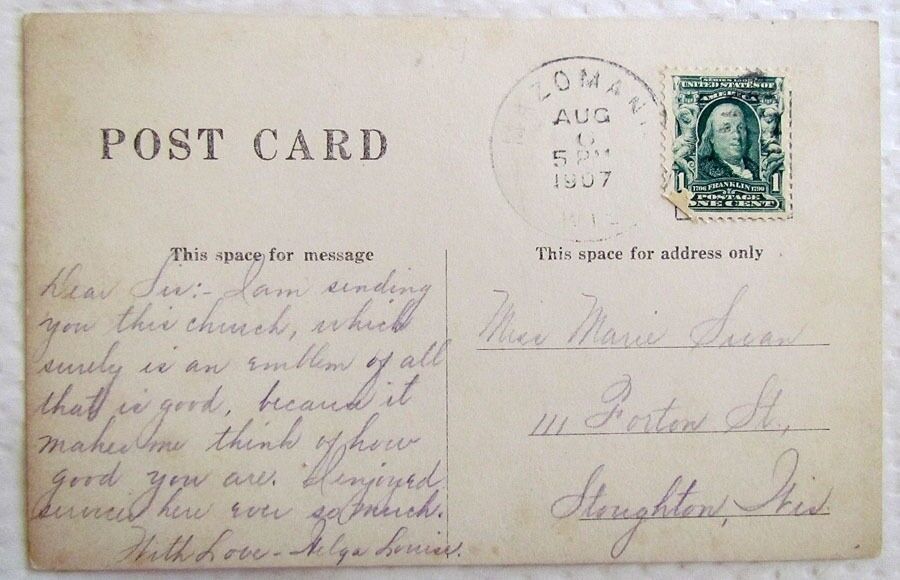 POST CARD
MAZOMAN
AUG
6
5 PM
1907
WIS
SERIES 1902
UNITED STATES OF
AMERICA
1 1706 FRANKLIN 1790 1
POSTAGE
ONE CENT
This space for message
Dear Sis:- I am sending
you this church, which
surely is an emblem of all
that is good, because it
makes me think of how
good you are. I enjoyed
services here ever so much.
With Love - Helga Louise.
This space for address only
Miss Marie Swan
111 Forton St.,
Stoughton, Wis.